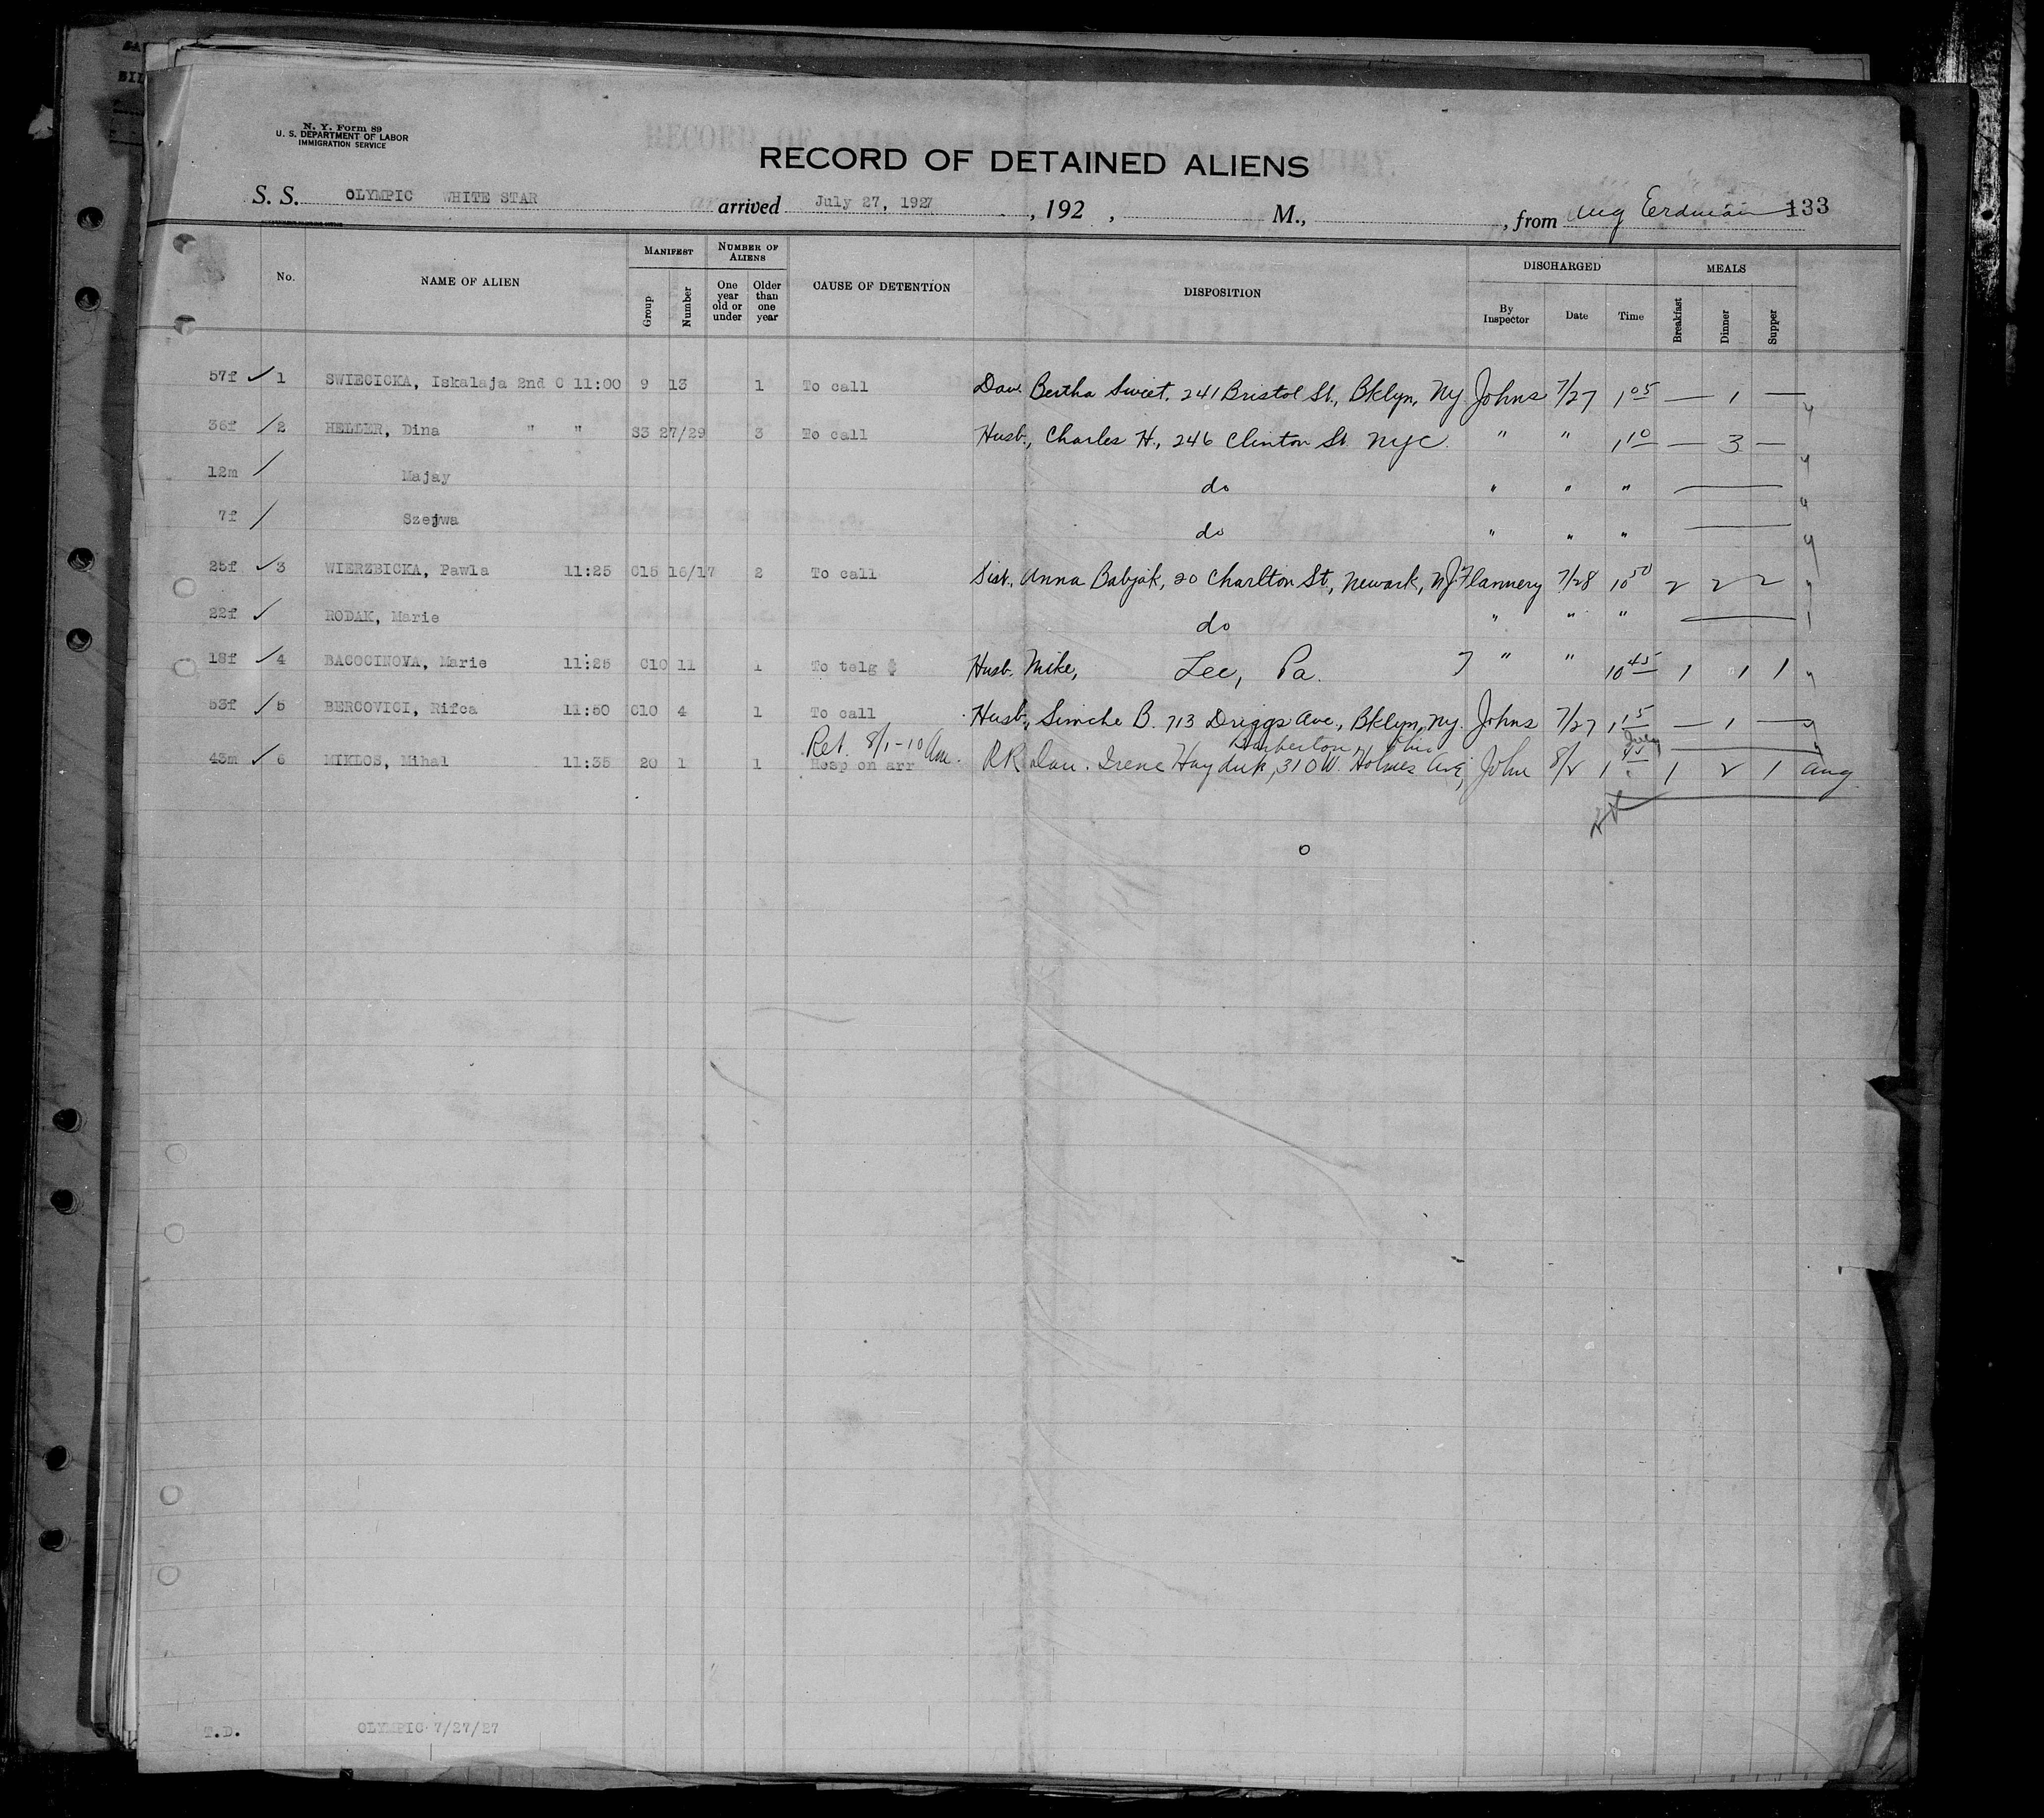 N. Y. Form 89
U. S. DEPARTMENT OF LABOR
IMMIGRATION SERVICE
RECORD OF DETAINED ALIENS
S. S. OLYMPIC WHITE STAR arrived July 27, 1927, 192 , M., , from Aug Erdman 133
No. NAME OF ALIEN MANIFEST Group Number NUMBER OF ALIENS One year old or under Older than one year CAUSE OF DETENTION DISPOSITION DISCHARGED By Inspector Date Time MEALS Breakfast Dinner Supper
57f ✓ 1 SWIECICKA, Iskalaja 2nd C 11:00 9 13 1 To call Dau. Bertha Sweet, 241 Bristol St., Bklyn, NY. Johns 7/27 1 05 — 1 —
36f / 2 HELLER, Dina " " S3 27/29 3 To call Husb., Charles H., 246 Clinton St NYC. " " 1 10 — 3 —
12m / Majay do " " "
7f / Szejwa do " " "
25f ✓ 3 WIERZBICKA, Pawla 11:25 C15 16/17 2 To call Sist., Anna Babjak, 20 Charlton St., Newark, NJ Flannery 7/28 10 50 2 2 2
22f ✓ RODAK, Marie do " " "
18f ✓ 4 BACOCINOVA, Marie 11:25 C10 11 1 To telg Husb. Mike, Lee, Pa. " " 10 45 1 1 1
53f / 5 BERCOVICI, Rifca 11:50 C10 4 1 To call Husb., Simche B. 713 Driggs Ave., Bklyn, NY. Johns 7/27 1 15 — 1 —
Ret. 8/1-10 Am. Barberton, Ohio July
43m ✓ 6 MIKLOS, Mihal 11:35 20 1 1 Hosp on arr RR Dau. Irene Hayduk, 310 W. Holmes Ave, John 8/2 1 45 1 2 1 Aug
T.D. OLYMPIC 7/27/27